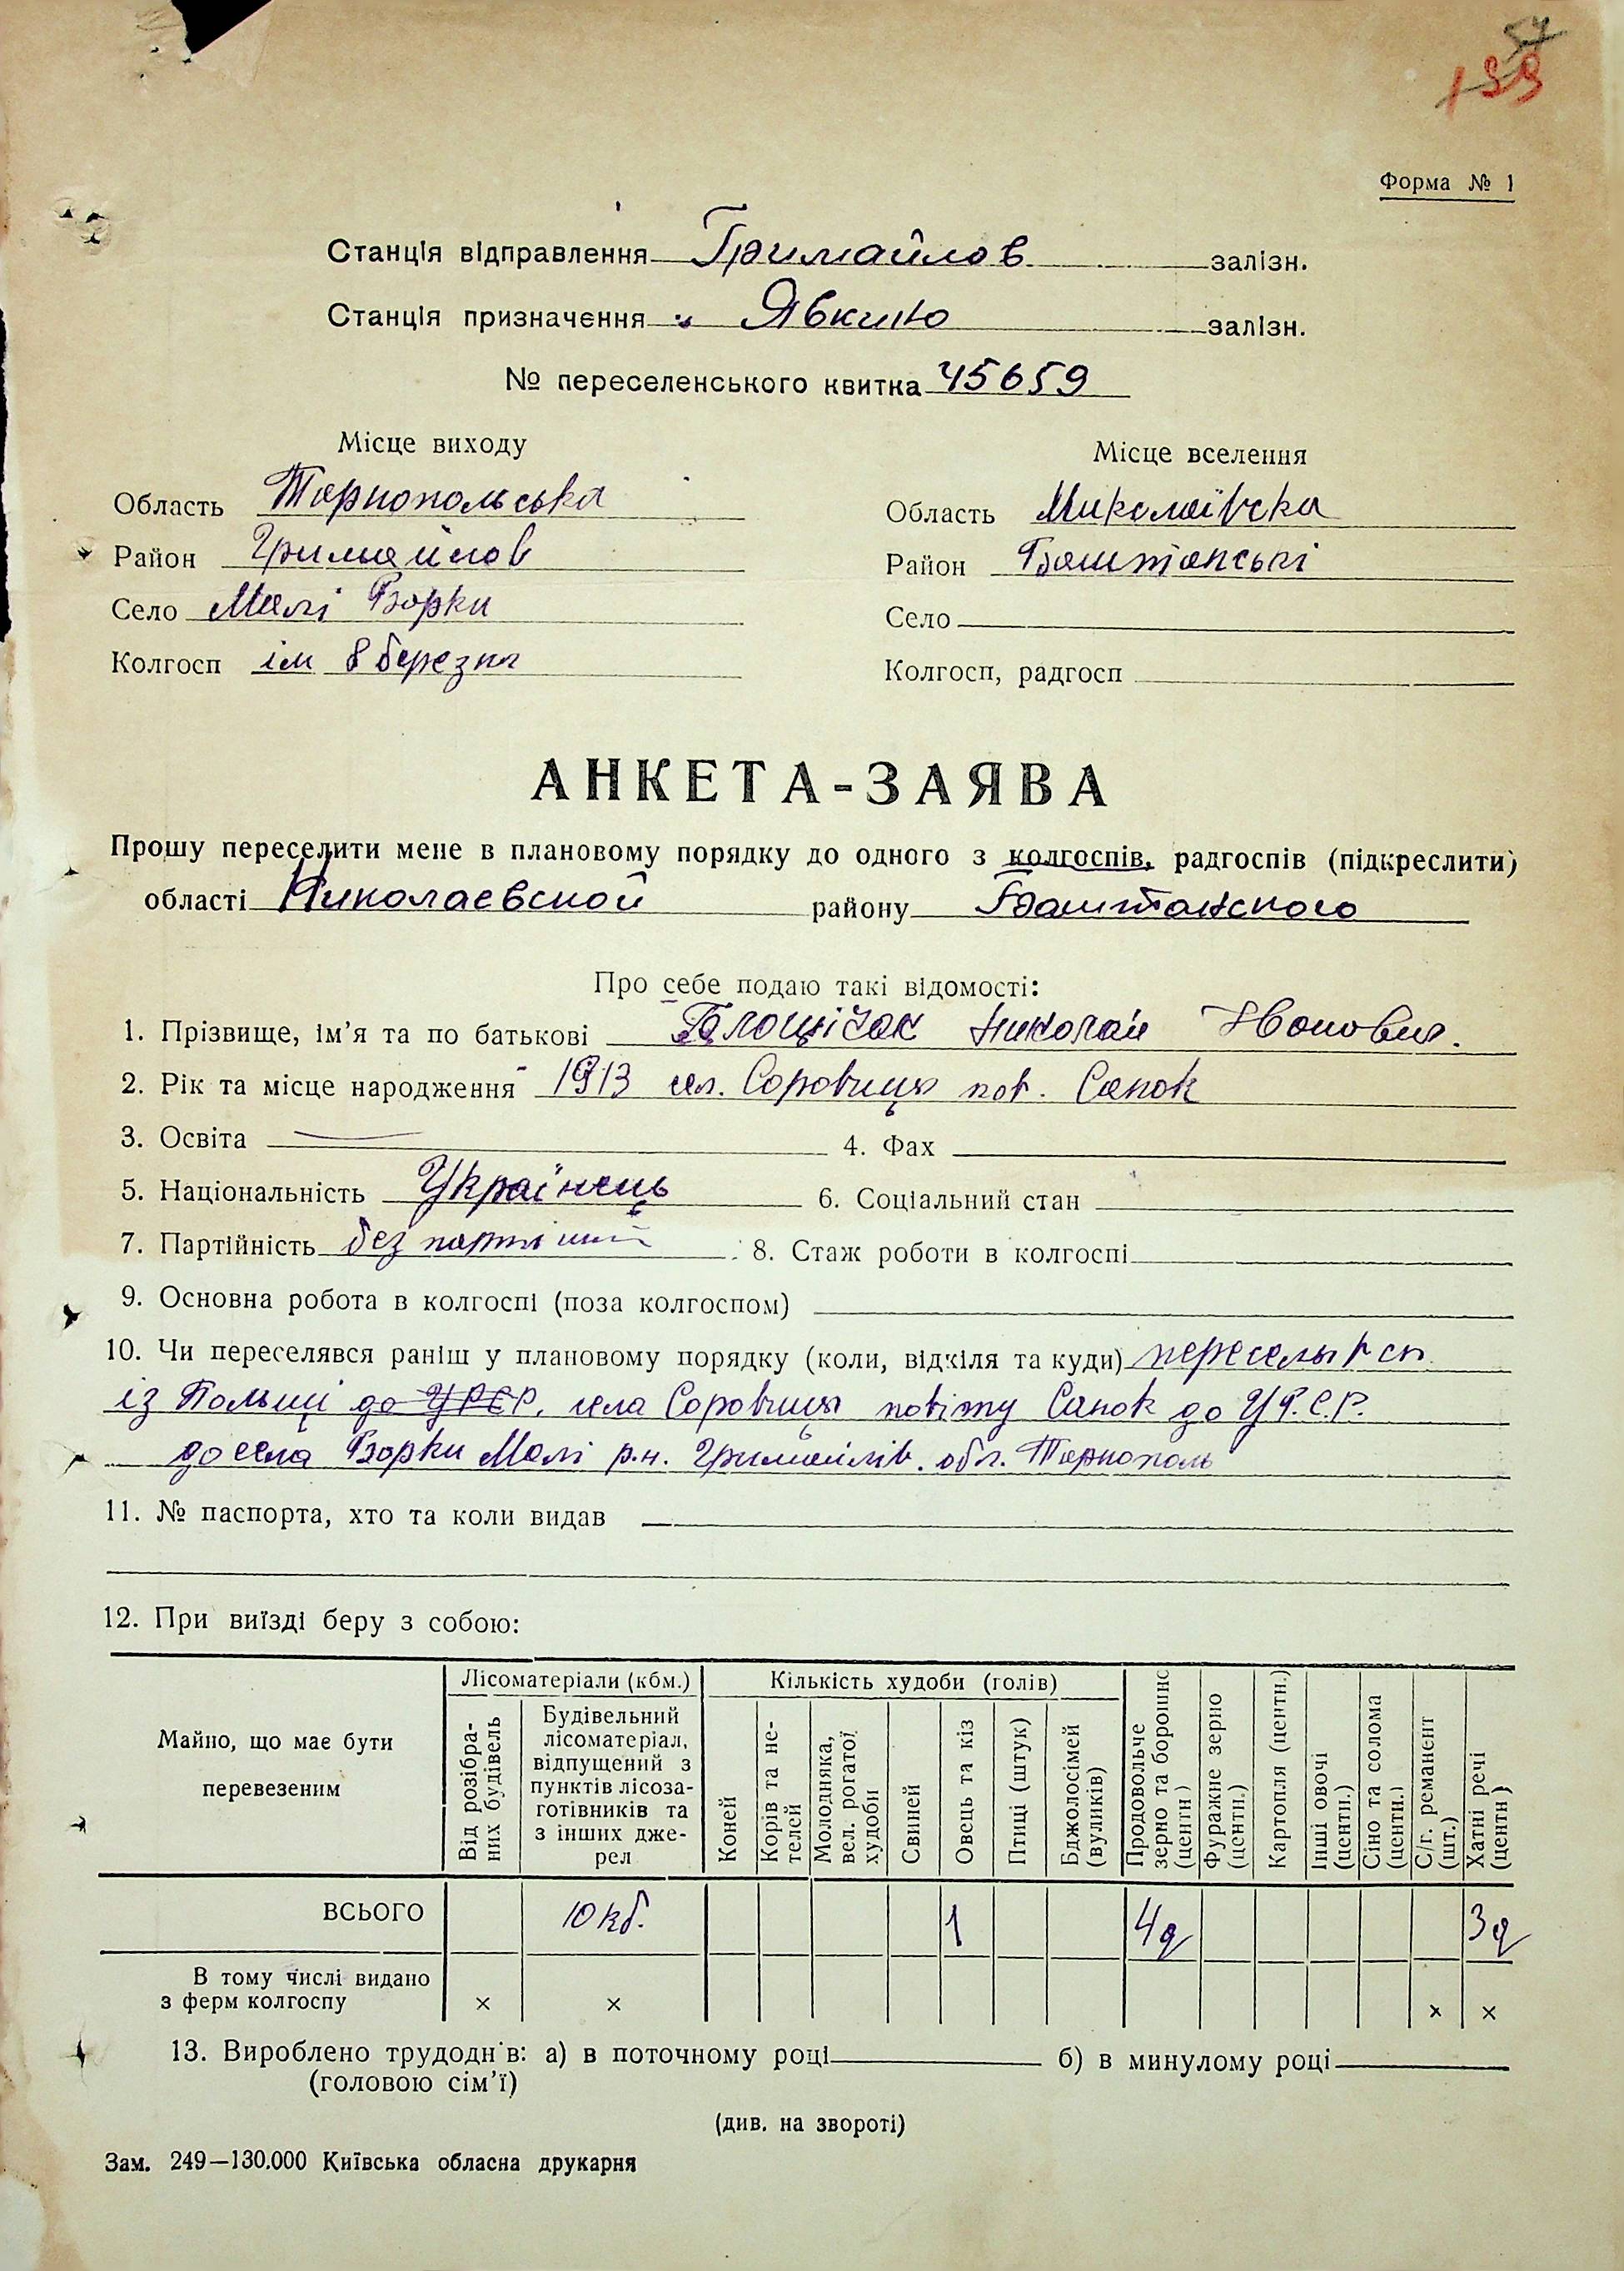 54
199
Форма № 1
Станція відправлення Гримайлов залізн.
Станція призначення Явкино залізн.
№ переселенського квитка 45659
Місце виходу
Область Тернопольська
Район Гримайлов
Село Малі Борки
Колгосп ім 8 березня
Місце вселення
Область Миколаївска
Район Баштанські
Село
Колгосп, радгосп
АНКЕТА-ЗАЯВА
Прошу переселити мене в плановому порядку до одного з колгоспів, радгоспів (підкреслити)
області Николаевской району Баштанского
Про себе подаю такі відомості:
1. Прізвище, ім’я та по батькові Николай
2. Рік та місце народження 1913 пов. Санок
3. Освіта 4. Фах
5. Національність Українець 6. Соціальний стан
7. Партійність без партійний 8. Стаж роботи в колгоспі
9. Основна робота в колгоспі (поза колгоспом)
10. Чи переселявся раніш у плановому порядку (коли, відкіля та куди) переселывся
із Польщі до УРСР, села повіту Санок до У.Р.С.Р.
до села Борки Малі р.н. Гримайлів. обл. Тернополь
11. № паспорта, хто та коли видав
12. При виїзді беру з собою:
Майно, що має бути перевезеним
Лісоматеріали (кбм.)
Від розібраних будівель
Будівельний лісоматеріал, відпущений з пунктів лісозаготівників та з інших джерел
Кількість худоби (голів)
Коней
Корів та нетелей
Молодняка, вел. рогатої худоби
Свиней
Овець та кіз
Птиці (штук)
Бджолосімей (вуликів)
Продовольче зерно та борошно (центн)
Фуражне зерно (центн.)
Картопля (центн.)
Інші овочі (центн.)
Сіно та солома (центн.)
С/г. реманент (шт.)
Хатні речі (центн)
ВСЬОГО 10 кб. 1 4q 3q
В тому числі видано з ферм колгоспу × × × ×
13. Вироблено трудоднів: а) в поточному році б) в минулому році
(головою сім’ї)
(див. на звороті)
Зам. 249—130.000 Київська обласна друкарня